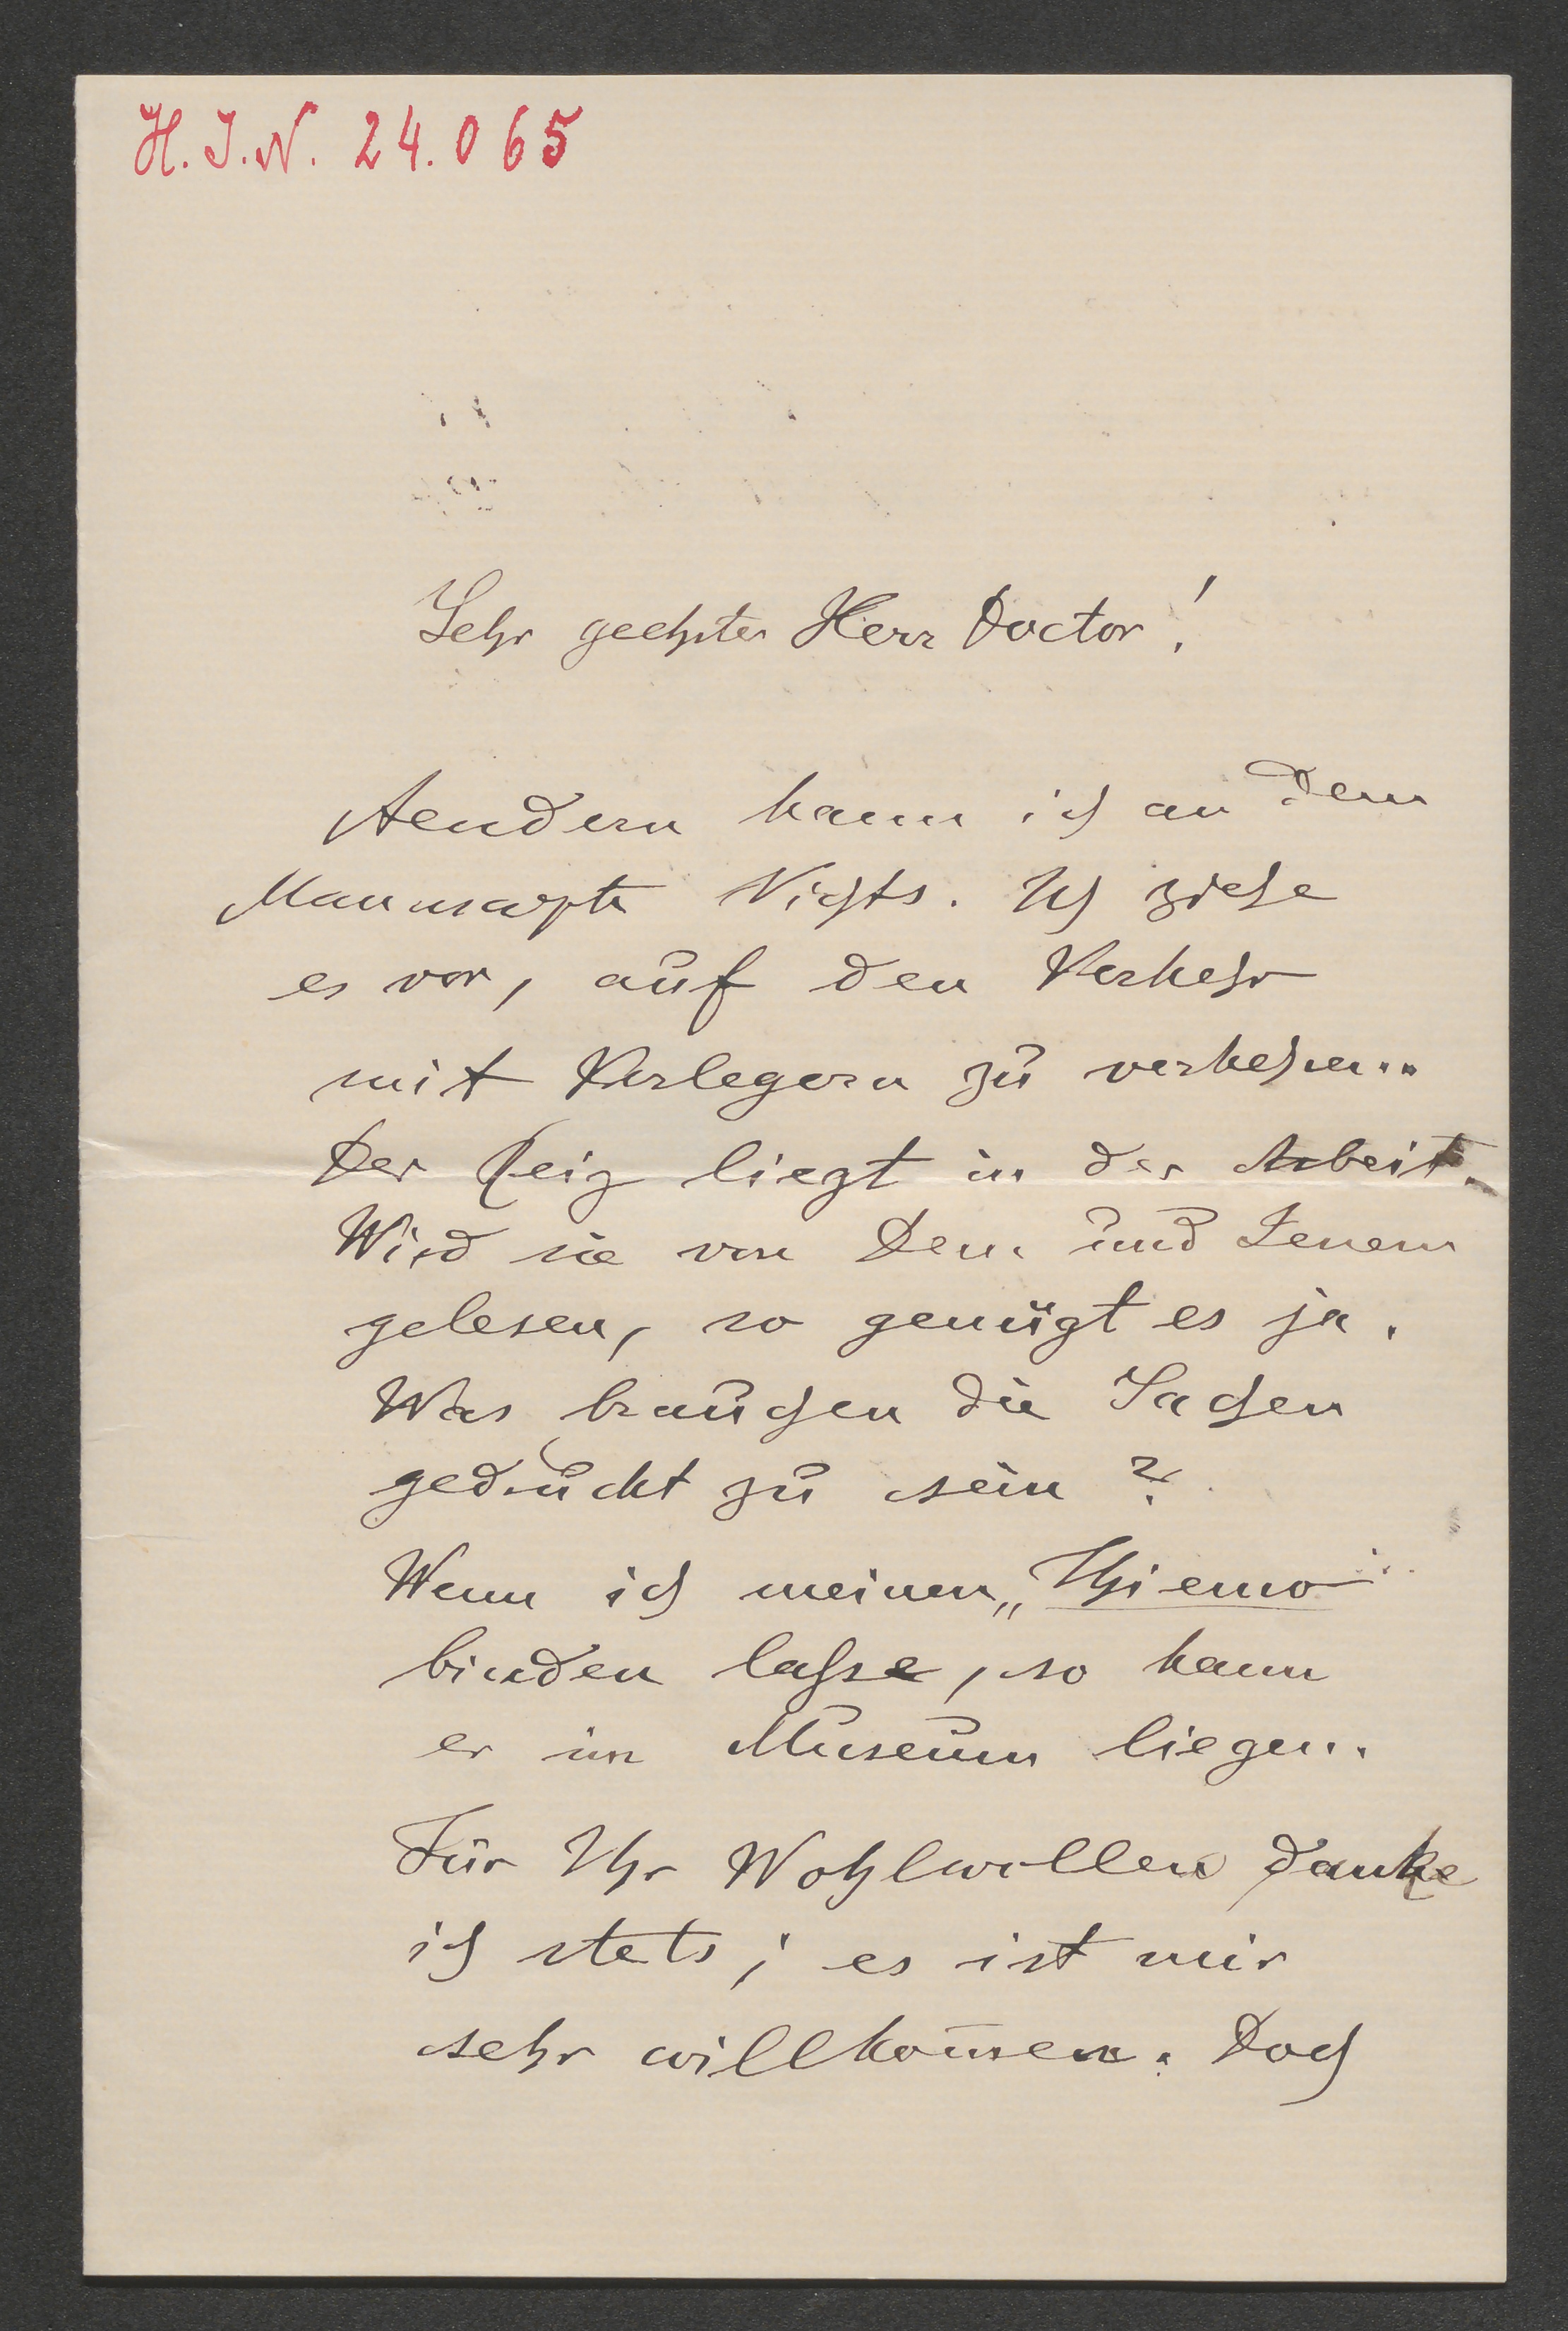 H. I. N. 24.065
Sehr geehrter Herr Doctor!
Aendern kann ich an dem
Manuscripte Nichts. Ich ziehe
es vor, auf den Verkehr
mit Verlegern zu verkehren.
Der Reiz liegt in der Arbeit.
Wird sie von Dem und Jenem
gelesen, so genügt es ja.
Was brauchen die Sachen
gedruckt zu sein?
Wenn ich meinen „Thiemo“
binden lasse, so kann
er im Museum liegen.
Für Ihr Wohlwollen danke
ich stets; es ist mir
sehr willkom̅en. Doch